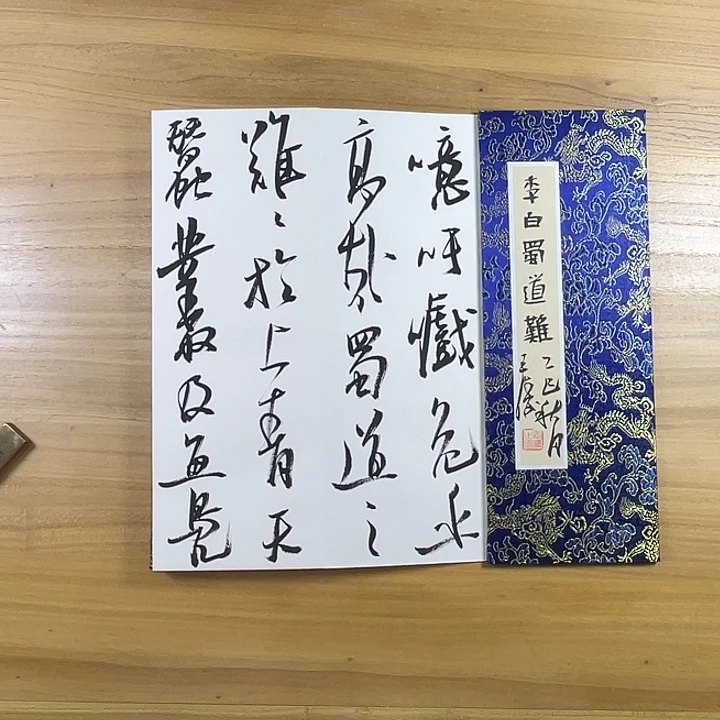 李白蜀道難
乙巳秋月
噫吁嚱危乎
高哉蜀道之
難〻於上青天
蠶叢及魚鳧